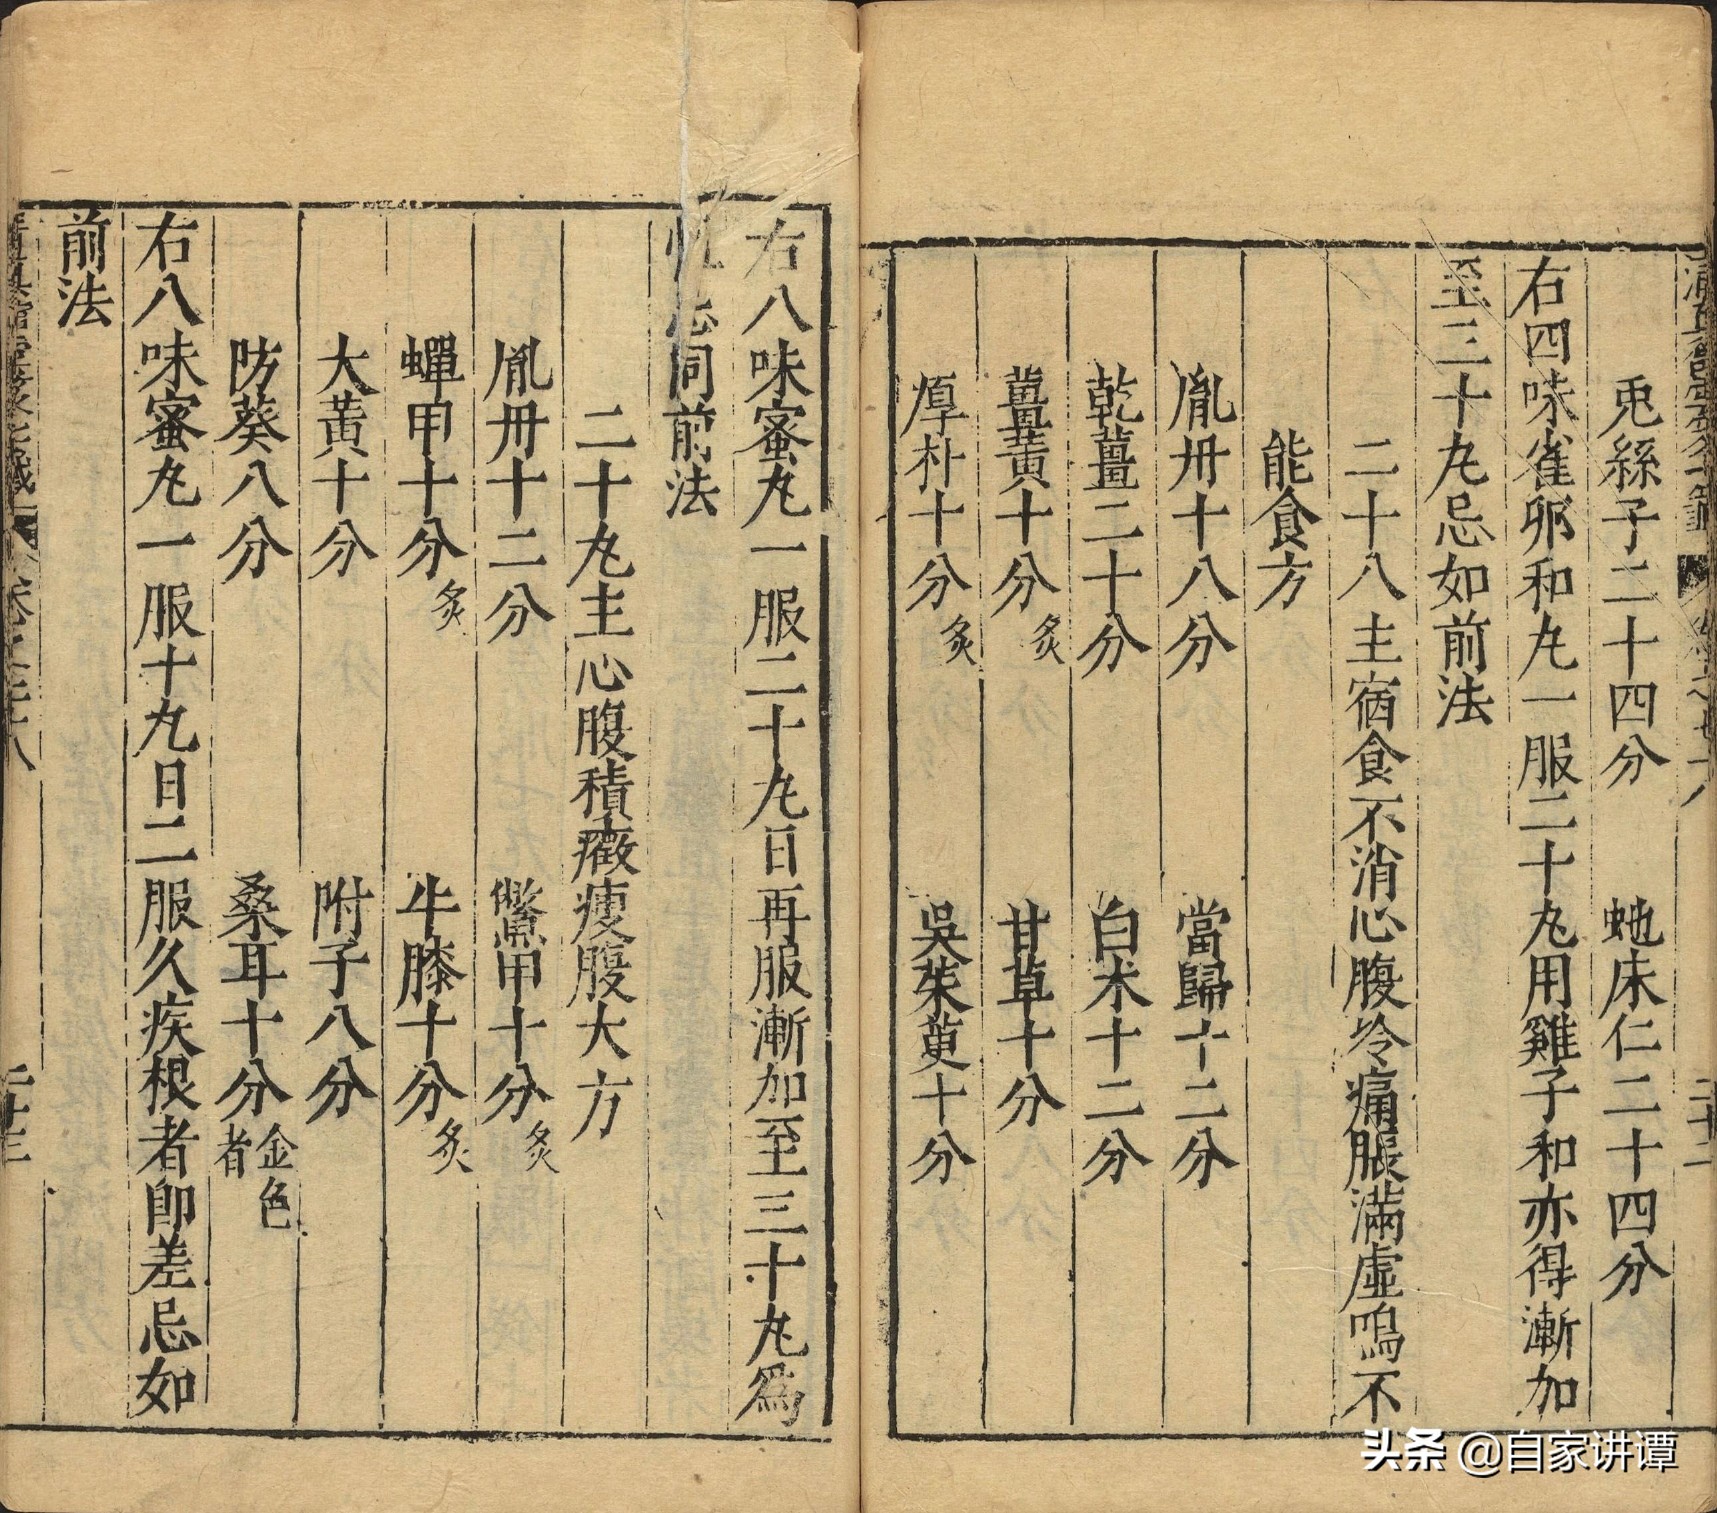 兎絲子二十四分 虵床仁二十四分
右四味雀卵和丸一服二十丸用雞子和亦得漸加
至三十丸忌如前法
二十八主宿食不消心腹冷痛脹滿虛嗚不
能食方
胤丹十八分 當歸十二分
乾薑二十分 白朮十二分
薑黃十分炙 甘草十分
厚朴十分炙 吳茱萸十分
右八味蜜丸一服二十丸日再服漸加至三十丸為
忌同前法
二十九主心腹積癥瘦腹大方
胤丹十二分 鱉甲十分炙
蟬甲十分炙 牛膝十分炙
大黃十分 附子八分
防葵八分 桑耳十分金色者
右八味蜜丸一服十丸日二服久疾根者即差忌如
前法
二十三
头条 @自家讲谭